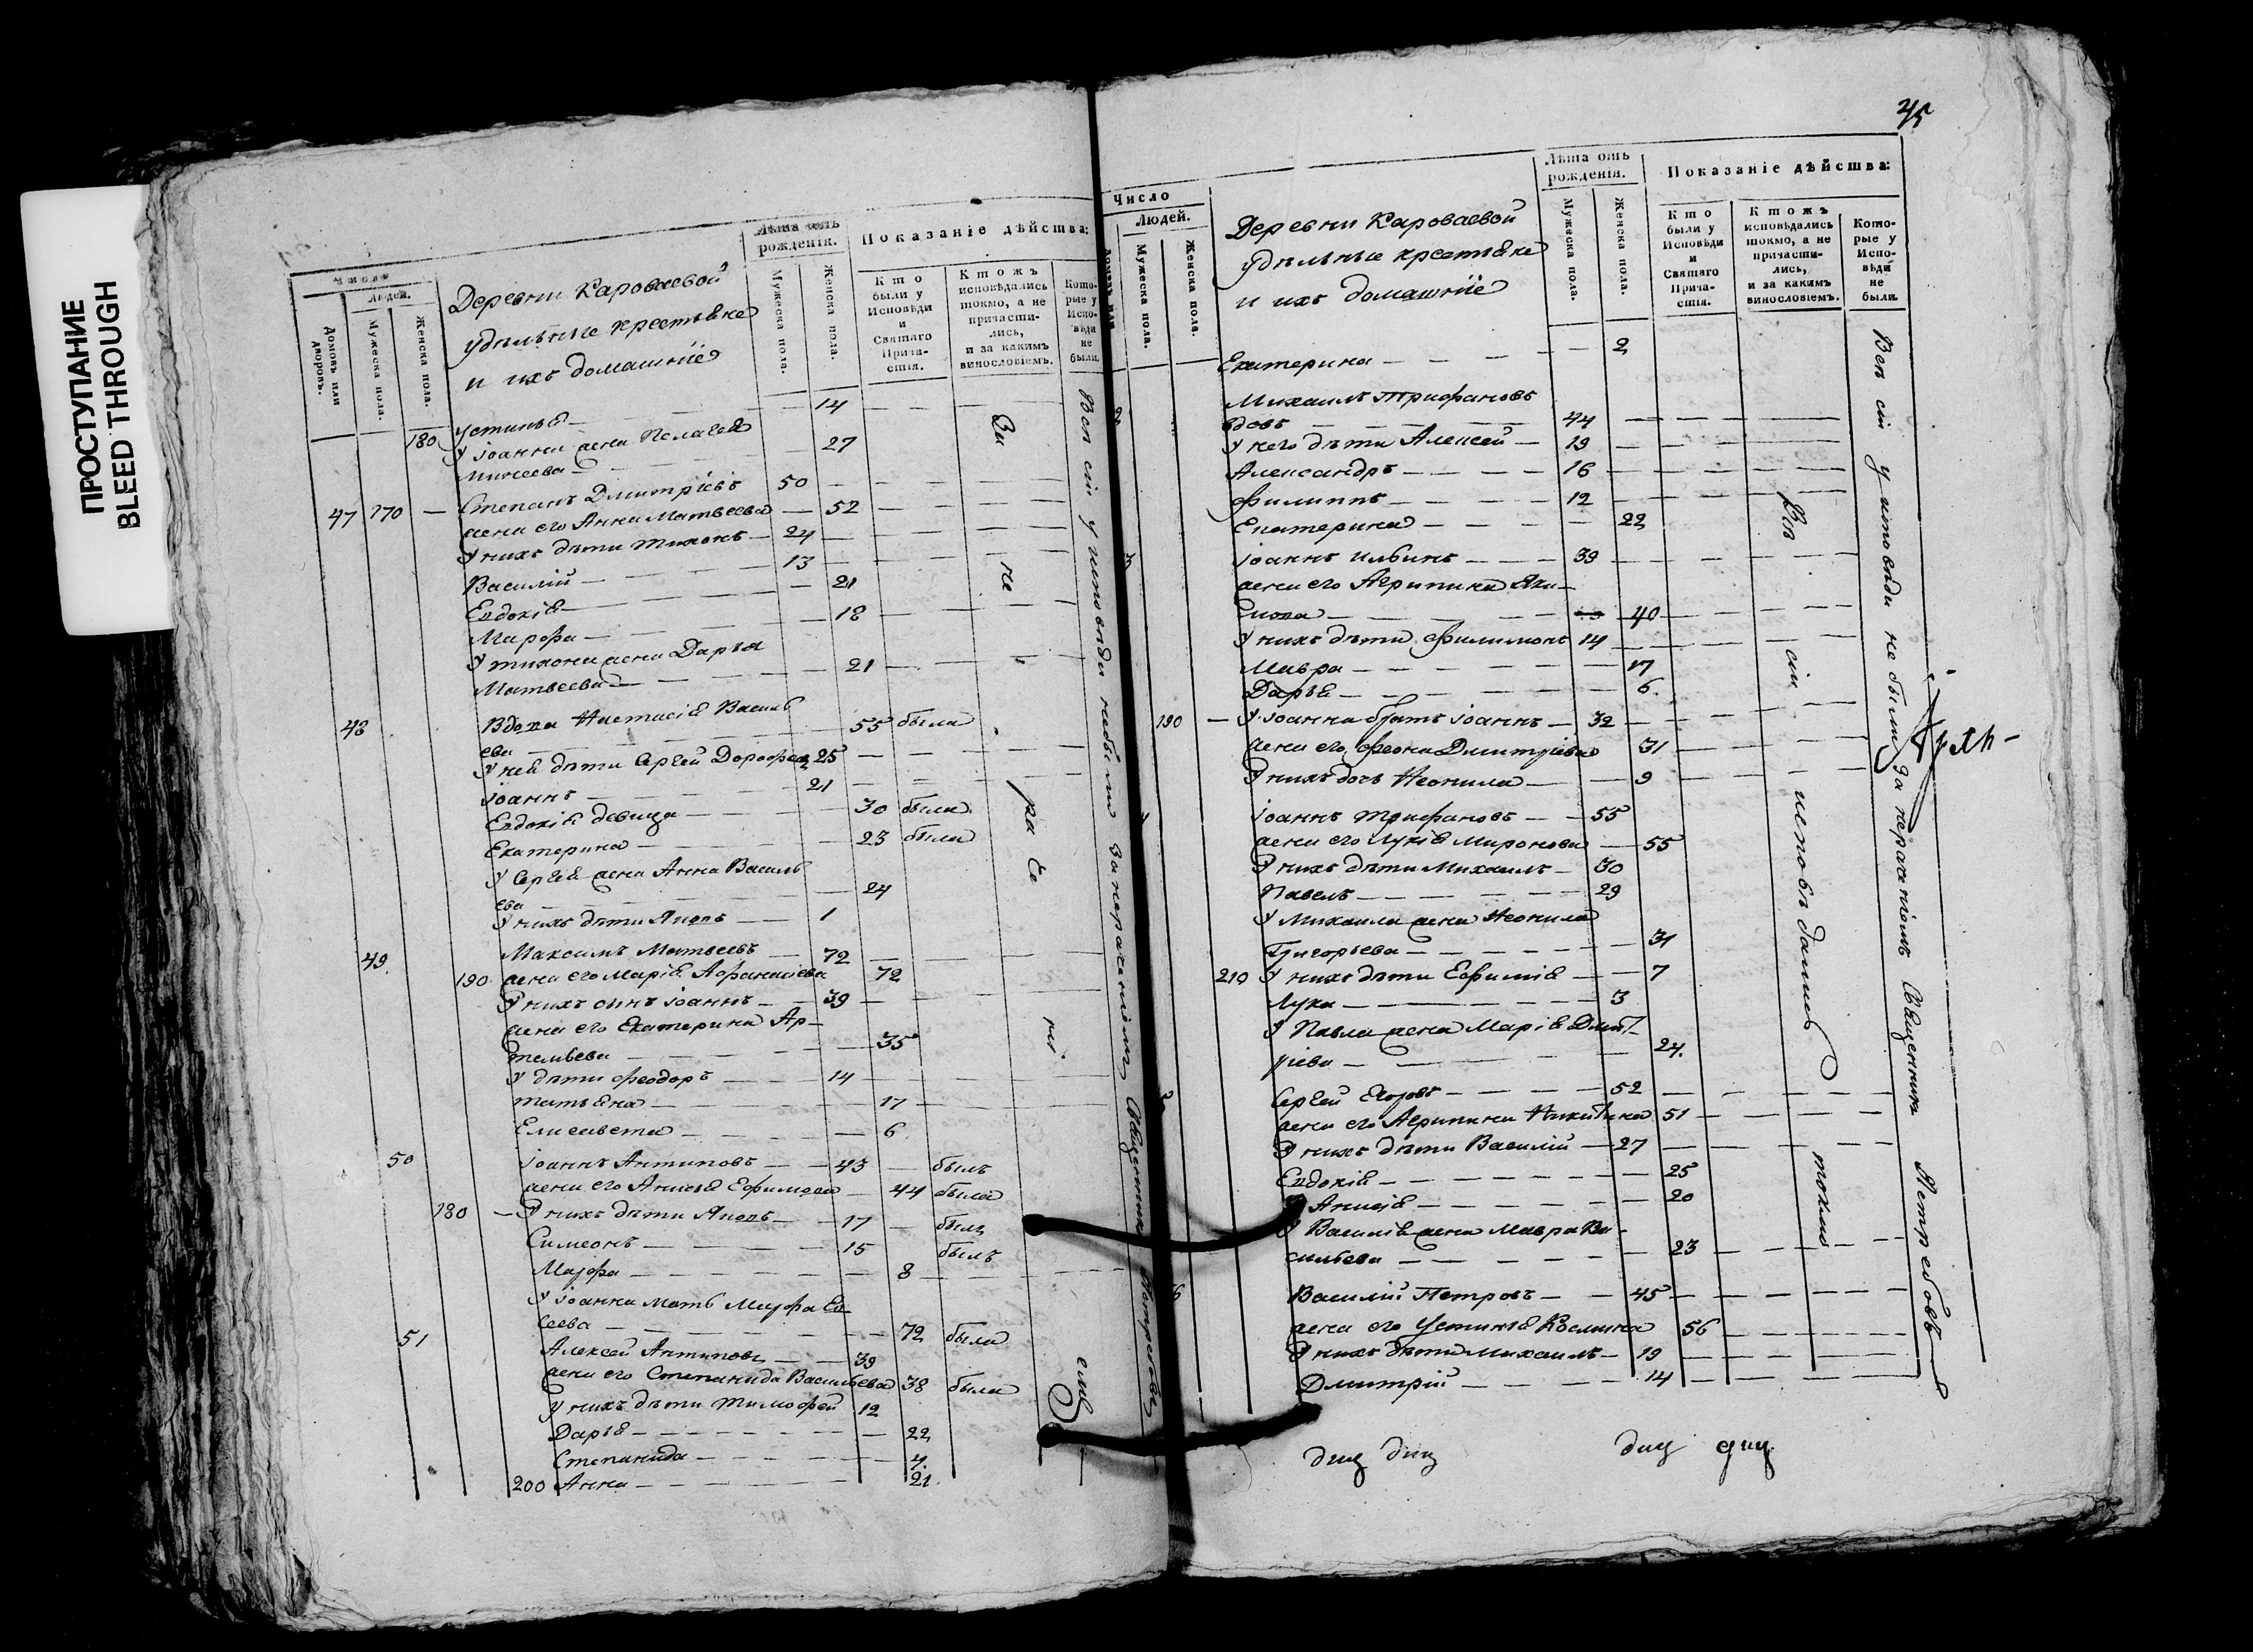 ПРОСТУПАНИЕ
BLEED THROUGH
Число
Людей.
Домовъ или дворовъ.
Мужеска пола.
Женска пола.
Деревни Кароваевой
удѣльные крестьяне
и ихъ домашніе
Лѣта отъ рожденія.
Мужеска пола.
Женска пола.
Показаніе дѣйства:
Кто были у Исповѣди и Святаго Прича-стія.
Ктожъ исповѣдались токмо, а не причасти-лись, и за какимъ винословіемъ.
Кото-рые у Испо-вѣди не были.
Устинья — 14
180 У Іоанна жена Пелагея
Минеева — 27
47 170 — Степанъ Дмитріевъ 50
жена его Анна Матвеева — 52
У нихъ дѣти Тихонъ — 24
Василій — 13
Евдокія — 21
Марфа — 18
У Тихона жена Дарья
Матвеева — 21
48 Вдова Настасія Василь
ева — 55 была
У нея дѣти Сергей Дорофеевъ 25
Іоаннъ — 21
Евдокія девица — 30 была
Екатерина — 23 была
У Сергея жена Анна Василь
ева — 24
У нихъ дѣти Яковъ — 1
49 Максимъ Матвеевъ — 72
190 жена его Марія Афанасіева 72
У нихъ сынъ Іоаннъ — 39
жена его Екатерина Ар-
темьева — 35
У дѣти Феодоръ — 14
Татьяна — 17
Елисавета — 6
50 Іоаннъ Антиповъ — 43 — былъ
жена его Анисья Ефимова — 44 была
180 — У нихъ дѣти Яковъ — 17 — былъ
Симеонъ — 15 былъ
Марфа — 8
У Іоанна мать Марфа Ев
сеева — 72 была
51 Алексей Антиповъ — 39
жена его Степанида Васильева 38 была
У нихъ дѣти Тимофей 12
Дарья — 22
Степанида — 4.
200 Анна — 21.
Всѣ сіи у исповѣди небыли за нераженіемъ Священникъ Петръ
45
Число
Людей.
Мужеска пола.
Женска пола.
Деревни Кароваевой
удѣльные крестьяне
и ихъ домашніе
Лѣта отъ рожденія.
Мужеска пола.
Женска пола.
Показаніе дѣйства:
Кто были у Исповѣди и Святаго Прича-стія.
Ктожъ исповѣдались токмо, а не причасти-лись, и за какимъ винословіемъ.
Кото-рые у Испо-вѣди не были.
Екатерина — 2
Михаилъ Трифановъ
вдовъ — 44
У него дѣти Алексей — 19
Александръ — 16
Филиппъ — 12
Екатерина — 22
Іоаннъ Ильинъ — 39
жена его Агрипина Яки-
мова — 40
У нихъ дѣти Филимонъ 14
Мавра — 17
Дарья — 6.
190 — У Іоанна братъ Іоаннъ — 32
жена его Феона Дмитріева 31
У нихъ дочь Неонила — 9
Іоаннъ Трифановъ — 55
жена его Лукія Миронова — 55
У нихъ дѣти Михаилъ — 30
Павелъ — 29
У Михаила жена Неонила
Григорьева — 31
210 У нихъ дѣти Ефимія — 7
Лука — 3
У Павла жена Марія Дмит-
ріева — 24.
Сергей Егоровъ — 52
жена его Агрипина Никитина 51
У нихъ дѣти Василій — 27
Евдокія — 25
Анисія — 20
У Василія жена Мавра Ва-
сильева — 23
Василій Петровъ — 45
жена его Устинья Козмина 56
У нихъ дѣти Михаилъ — 19
Дмитрій — 14
Всѣ сіи исповѣданы токмо
Всѣ сіи у исповѣди не были за нераженіемъ Священникъ Петръ